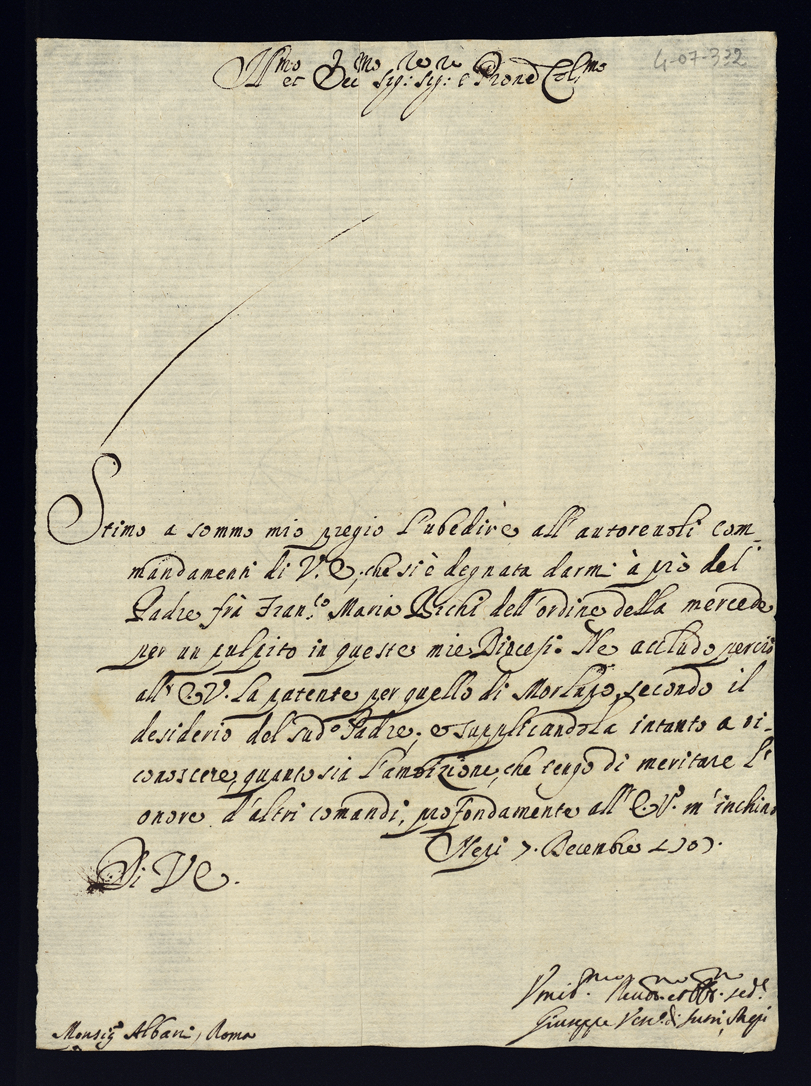 Ill.mo et Ecc.mo Sig.r Sig.r e Prone Col.mo
4-07-332
Stimo a sommo mio pregio l'ubedire all'autoreuoli com=
mandamenti di V. E., che si è degnata darmi à prò del
Padre frà Fran.co Maria Ricchi dell'ordine della mercede
per un pulpito in queste mie Diocesi. Ne accludo perciò
all'E V. la patente per quello di Morlupo, secondo il
desiderio del sud.o Padre, e supplicandola intanto a ri=
conoscere, quanto sia l'ambizione, che tengo di meritare l'
onore d'altri comandi, profondamente all'E. V. m'inchino
Nepi 7. Decembre 1707.
Di V E.
Vmil.mo Seru.
Giuseppe Vesc.o di Sutri, e Nepi
Monsig.r Albani, Roma